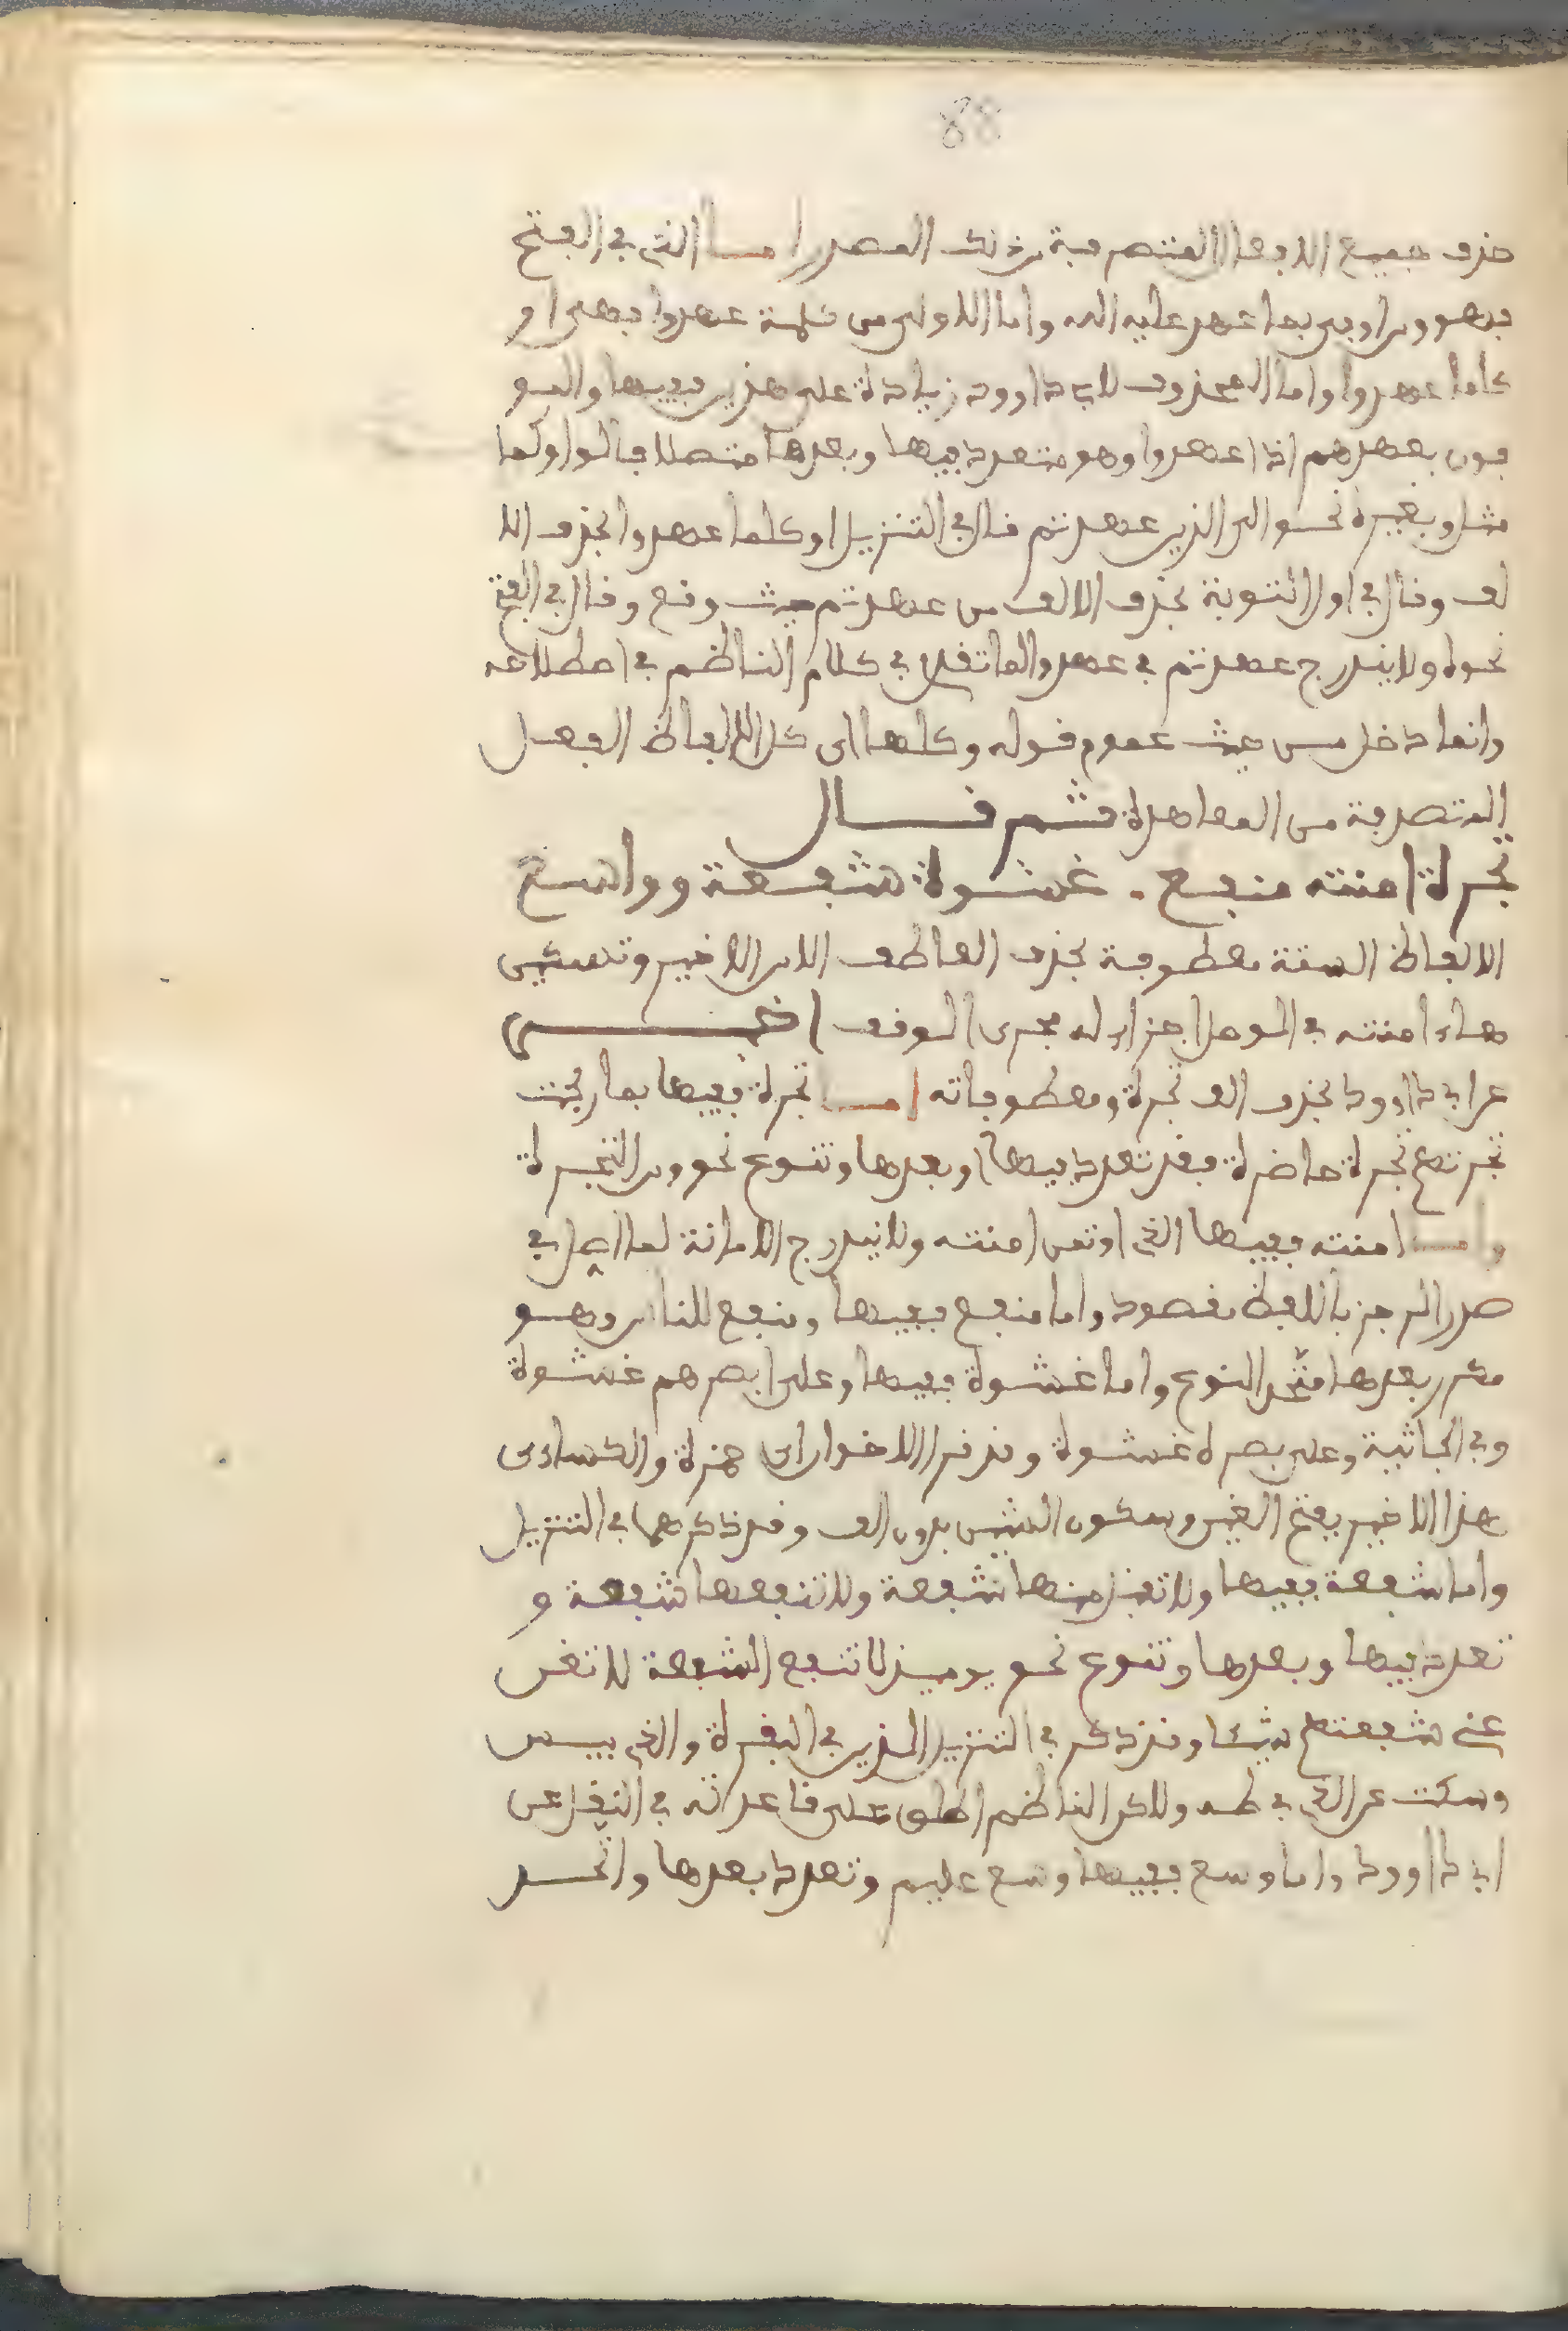 88
حذف جميع الافعال المتصرفة من ذلك المصدر اما الذي في الفتح
فهو ومن اوفى بما عهد عليه الله واما الاولى من كلمة عهدوا فهى او
كلما عهدوا واما المحذوف لابي داوود زيادة على هذين ففيها والمو
فون بعهدهم اذا عهدوا وهو متعدد فيها وبعدها متصلا
وبغيره نحو الى الذين عهدتم قال في التنزيل او كلما عهدوا بحذف الا
لف وقال في اول التوبة بحذف الالف من عهدتم حيث وقع وقال في الفتح
نحوه ولا يندرج عهدتم في عهدوا لما تقدم في كلام الناظم في اصطلاحه
وانما دخل من حيث عموم قوله وكلها اى كل الالفاظ الفعل
المتصرفة من المعاهدة ثم قال
تجرة امنته منفع . غشوة شفعة وواسع
الالفاظ الستة معطوفة بحذف العاطف الا من الاخير وتسكين
هاء امنته في الوصل اجراء له مجرى الوقف اخبر
عن ابي داوود بحذف الف تجرة ومعطوفاته اما تجرة ففيها فما ربحت
تجرتهم تجرة حاضرة فقد تعدد فيها وبعدها وتنوع نحو ومن التجرة
واما امنته ففيها الذي اوتمن امنته ولا يندرج الامانة لما اصل في
صدر الرجز باللفظ مقصود واما منفع ففيها ومنفع للناس وهو
مكرر بعدها متحد النوع واما غشوة ففيها وعلى ابصرهم غشوة
وفي الجاثية وعلى بصره غشوة وقد قرا الاخوان اى حمزة والكسائي
هذا الاخير بفتح الغين وسكون الشين بدون الف وقد ذكرهما في التنزيل
واما شفعة ففيها ولا تقبل منها شفعة ولا تنفعها شفعة و
تعدد فيها وبعدها وتنوع نحو يوميذ لا تنفع الشفعة لا تغن
عنى شفعتهم شيئا وقد ذكر في التنزيل الذين في البقرة والذي بيس
وسكت عن الذي في طه ولاكن الناظم اطلق على قاعدته في النقل عن
ابي داوود واما وسع ففيها وسع عليم وتعدد بعدها واتحد